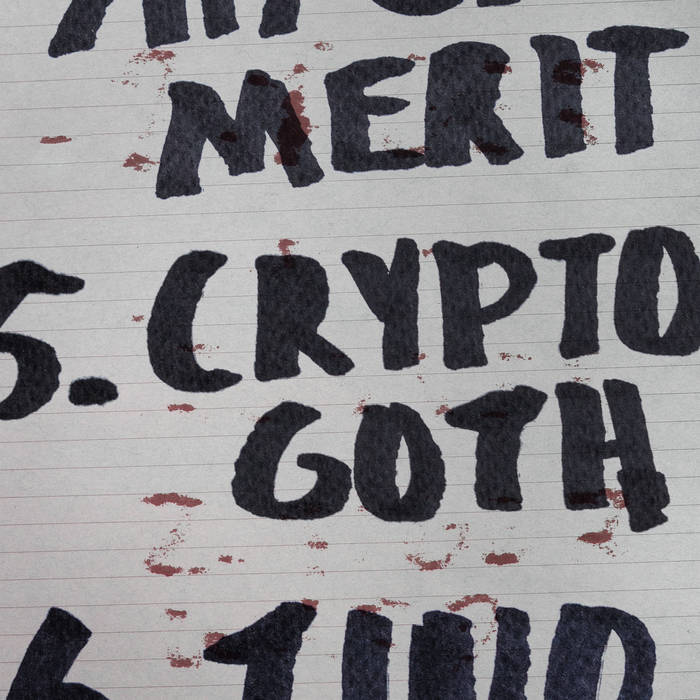 MERIT
5. CRYPTO
GOTH
6.